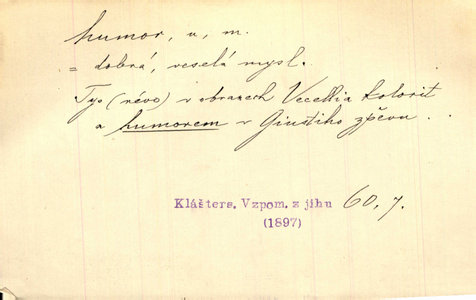 humor, u, m.
= dobrá, veselá mysl.
Tys (révo) v obrazech Vecellia kolorit
a humorem v Giustiho zpěvu . .
Klášters. Vzpom. z jihu 60, 7.
(1897)